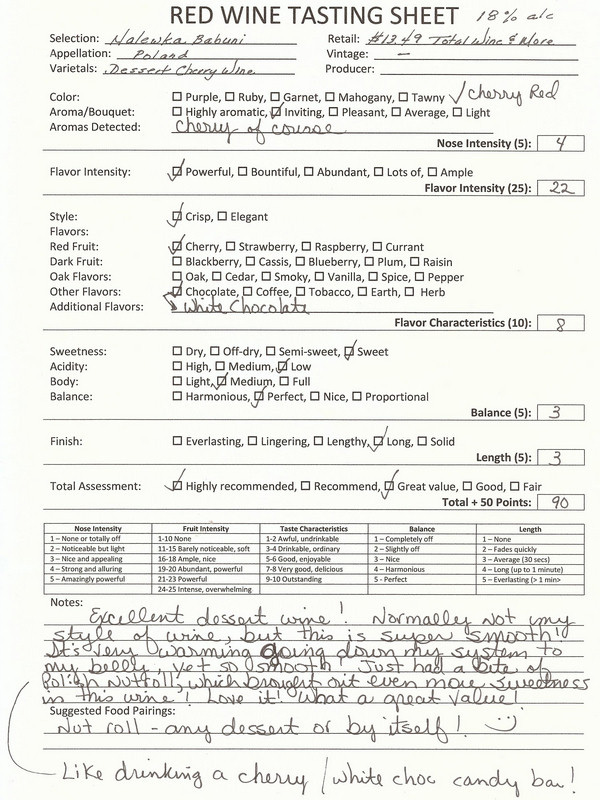 RED WINE TASTING SHEET 18% alc
Selection: Nalewka Babuni Retail: $13.49 Total Wine & More
Appellation: Poland Vintage: —
Varietals: Dessert Cherry Wine Producer:
Color: ☐ Purple, ☐ Ruby, ☐ Garnet, ☐ Mahogany, ☐ Tawny ✓ Cherry Red
Aroma/Bouquet: ☐ Highly aromatic, ☑ Inviting, ☐ Pleasant, ☐ Average, ☐ Light
Aromas Detected: Cherry of course
Nose Intensity (5): 4
Flavor Intensity: ☑ Powerful, ☐ Bountiful, ☐ Abundant, ☐ Lots of, ☐ Ample
Flavor Intensity (25): 22
Style: ☑ Crisp, ☐ Elegant
Flavors:
Red Fruit: ☑ Cherry, ☐ Strawberry, ☐ Raspberry, ☐ Currant
Dark Fruit: ☐ Blackberry, ☐ Cassis, ☐ Blueberry, ☐ Plum, ☐ Raisin
Oak Flavors: ☐ Oak, ☐ Cedar, ☐ Smoky, ☐ Vanilla, ☐ Spice, ☐ Pepper
Other Flavors: ☑ Chocolate, ☐ Coffee, ☐ Tobacco, ☐ Earth, ☐ Herb
Additional Flavors: White Chocolate
Flavor Characteristics (10): 8
Sweetness: ☐ Dry, ☐ Off-dry, ☐ Semi-sweet, ☑ Sweet
Acidity: ☐ High, ☐ Medium, ☑ Low
Body: ☐ Light, ☑ Medium, ☐ Full
Balance: ☐ Harmonious, ☑ Perfect, ☐ Nice, ☐ Proportional
Balance (5): 3
Finish: ☐ Everlasting, ☐ Lingering, ☐ Lengthy, ☑ Long, ☐ Solid
Length (5): 3
Total Assessment: ☑ Highly recommended, ☐ Recommend, ☑ Great value, ☐ Good, ☐ Fair
Total + 50 Points: 90
Nose Intensity Fruit Intensity Taste Characteristics Balance Length
1 – None or totally off 1-10 None 1-2 Awful, undrinkable 1 – Completely off 1 – None
2 – Noticeable but light 11-15 Barely noticeable, soft 3-4 Drinkable, ordinary 2 – Slightly off 2 – Fades quickly
3 – Nice and appealing 16-18 Ample, nice 5-6 Good, enjoyable 3 – Nice 3 – Average (30 secs)
4 – Strong and alluring 19-20 Abundant, powerful 7-8 Very good, delicious 4 – Harmonious 4 – Long (up to 1 minute)
5 – Amazingly powerful 21-23 Powerful 9-10 Outstanding 5 - Perfect 5 – Everlasting (> 1 min>
24-25 Intense, overwhelming
Notes:
Excellent dessert wine! Normally not my
style of wine, but this is super smooth!
It's very warming going down my system to
my belly, yet so smooth! Just had a bite of
Polish Nutroll, which brought out even more sweetness
in this wine! Love it! What a great value!
Suggested Food Pairings:
Nut roll - any dessert or by itself! :)
Like drinking a cherry / white choc candy bar!